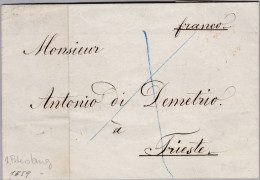 franco
Monsieur
Antonio di Demetrio
à
Trieste
1859